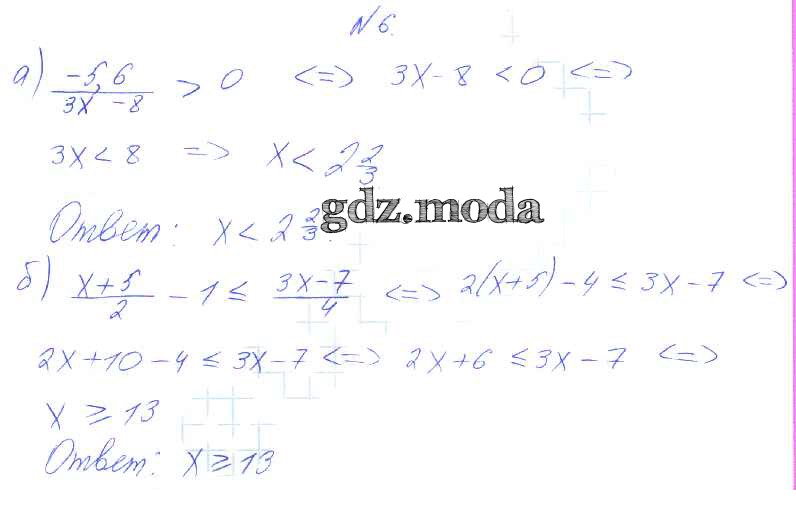 №6.
а) -5,6 / 3x - 8 > 0 <=> 3x - 8 < 0 <=>
3x < 8 => x < 2 2/3
Ответ: x < 2 2/3.
gdz.moda
б) x+5 / 2 - 1 ≤ 3x-7 / 4 <=> 2(x+5) - 4 ≤ 3x - 7 <=>
2x + 10 - 4 ≤ 3x - 7 <=> 2x + 6 ≤ 3x - 7 <=>
x ≥ 13
Ответ: x ≥ 13